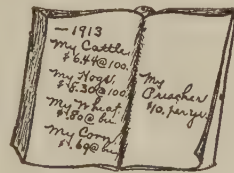 — 1913
My Cattle
$6.44@100.
My Hogs.
$6.30@100.
My Wheat.
$.80@ bu.
My Corn.
$.69@ bu.
My
Preacher
$10. per yr.